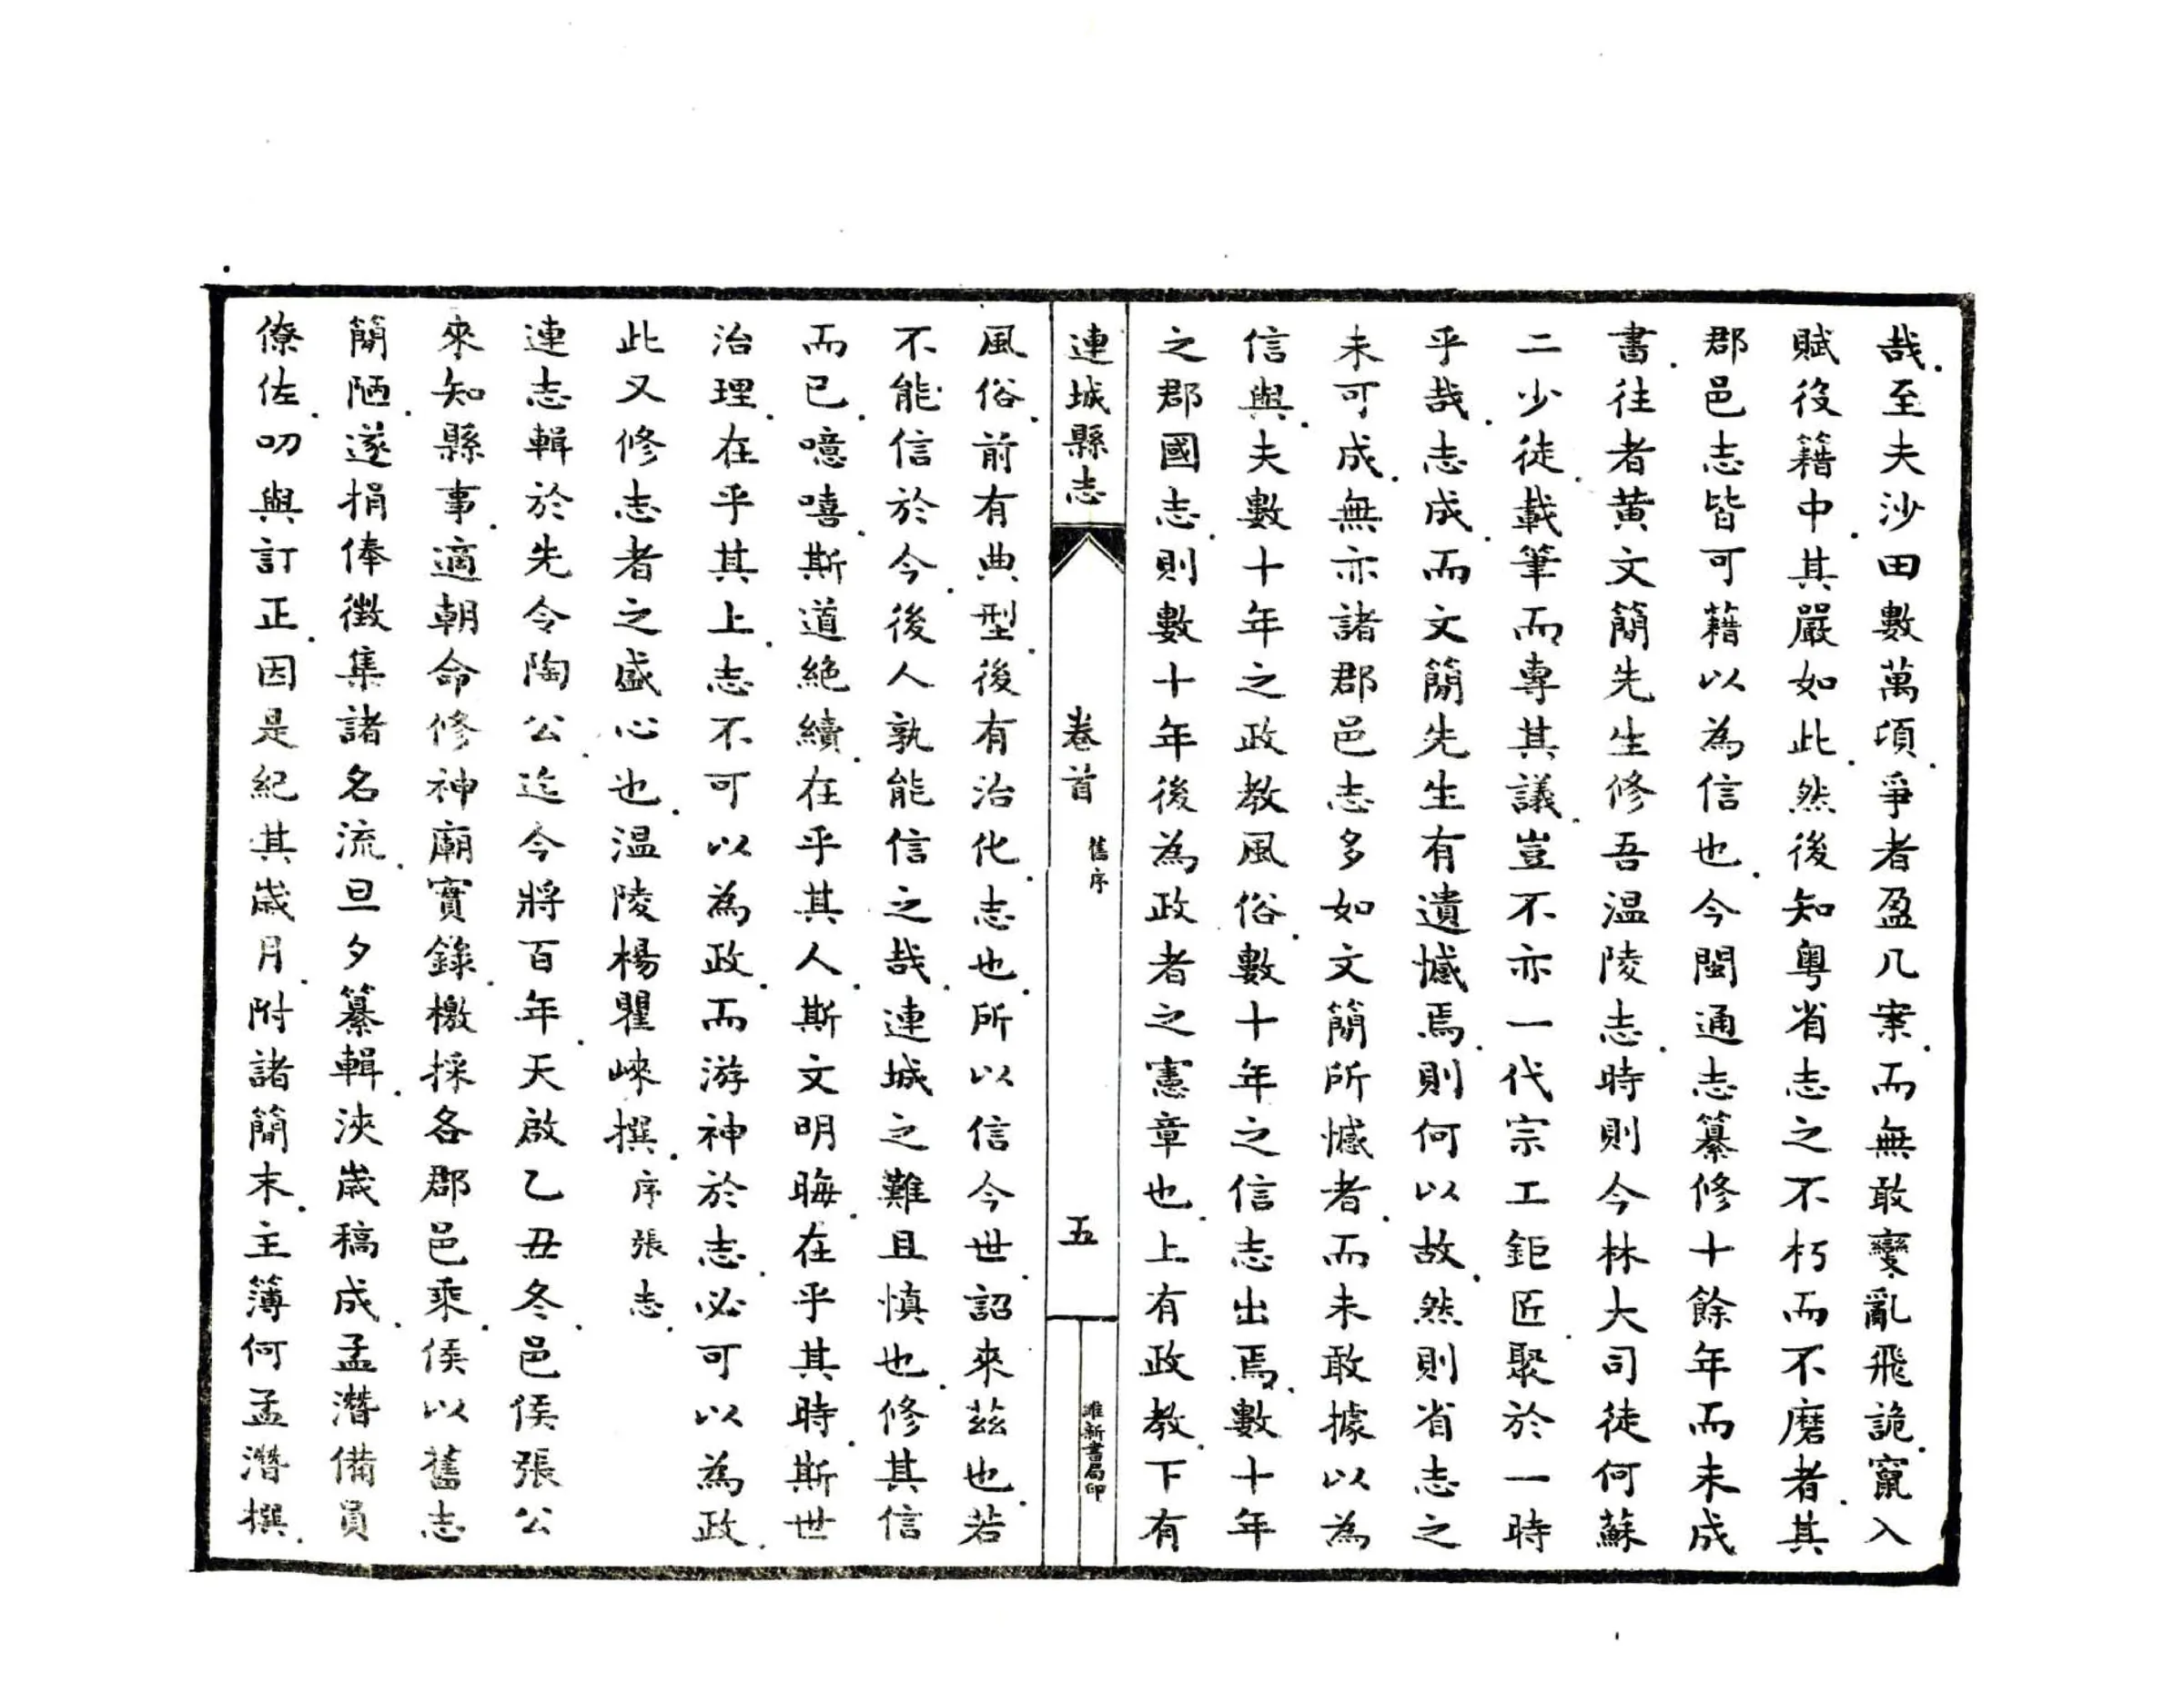 哉.至夫沙田數萬頃.爭者盈几案.而無敢變亂飛詭.竄入
賦役籍中.其嚴如此.然後知粵省志之不朽而不磨者.其
郡邑志皆可藉以為信也.今閩通志纂修十餘年而未成
書.往者黄文簡先生修吾温陵志.時則今林大司徒何蘇
二少徒.載筆而專其議.豈不亦一代宗工鉅匠.聚於一時
乎哉.志成.而文簡先生有遺憾焉.則何以故.然則省志之
未可成.無亦諸郡邑志多如文簡所憾者.而未敢據以為
信與.夫數十年之政教風俗.數十年之信志出焉.數十年
之郡國志.則數十年後為政者之憲章也.上有政教.下有
連城縣志
卷首
舊序
五
維新書局印
風俗.前有典型.後有治化.志也.所以信今世.詔來茲也.若
不能信於今.後人孰能信之哉.連城之難且慎也.修其信
而已.噫嘻.斯道絶續.在乎其人.斯文明晦.在乎其時.斯世
治理.在乎其上.志不可以為政.而游神於志.必可以為政.
此又修志者之盛心也.温陵楊瞿崍撰.序張志.
連志輯於先令陶公.迄今將百年.天啟乙丑冬.邑侯張公
來知縣事.適朝命修神廟實錄.檄採各郡邑乘.侯以舊志
簡陋.遂捐俸徵集諸名流.旦夕纂輯.浹歲稿成.孟潛備員
僚佐.叨與訂正.因是紀其歲月.附諸簡末.主簿何孟潛撰.